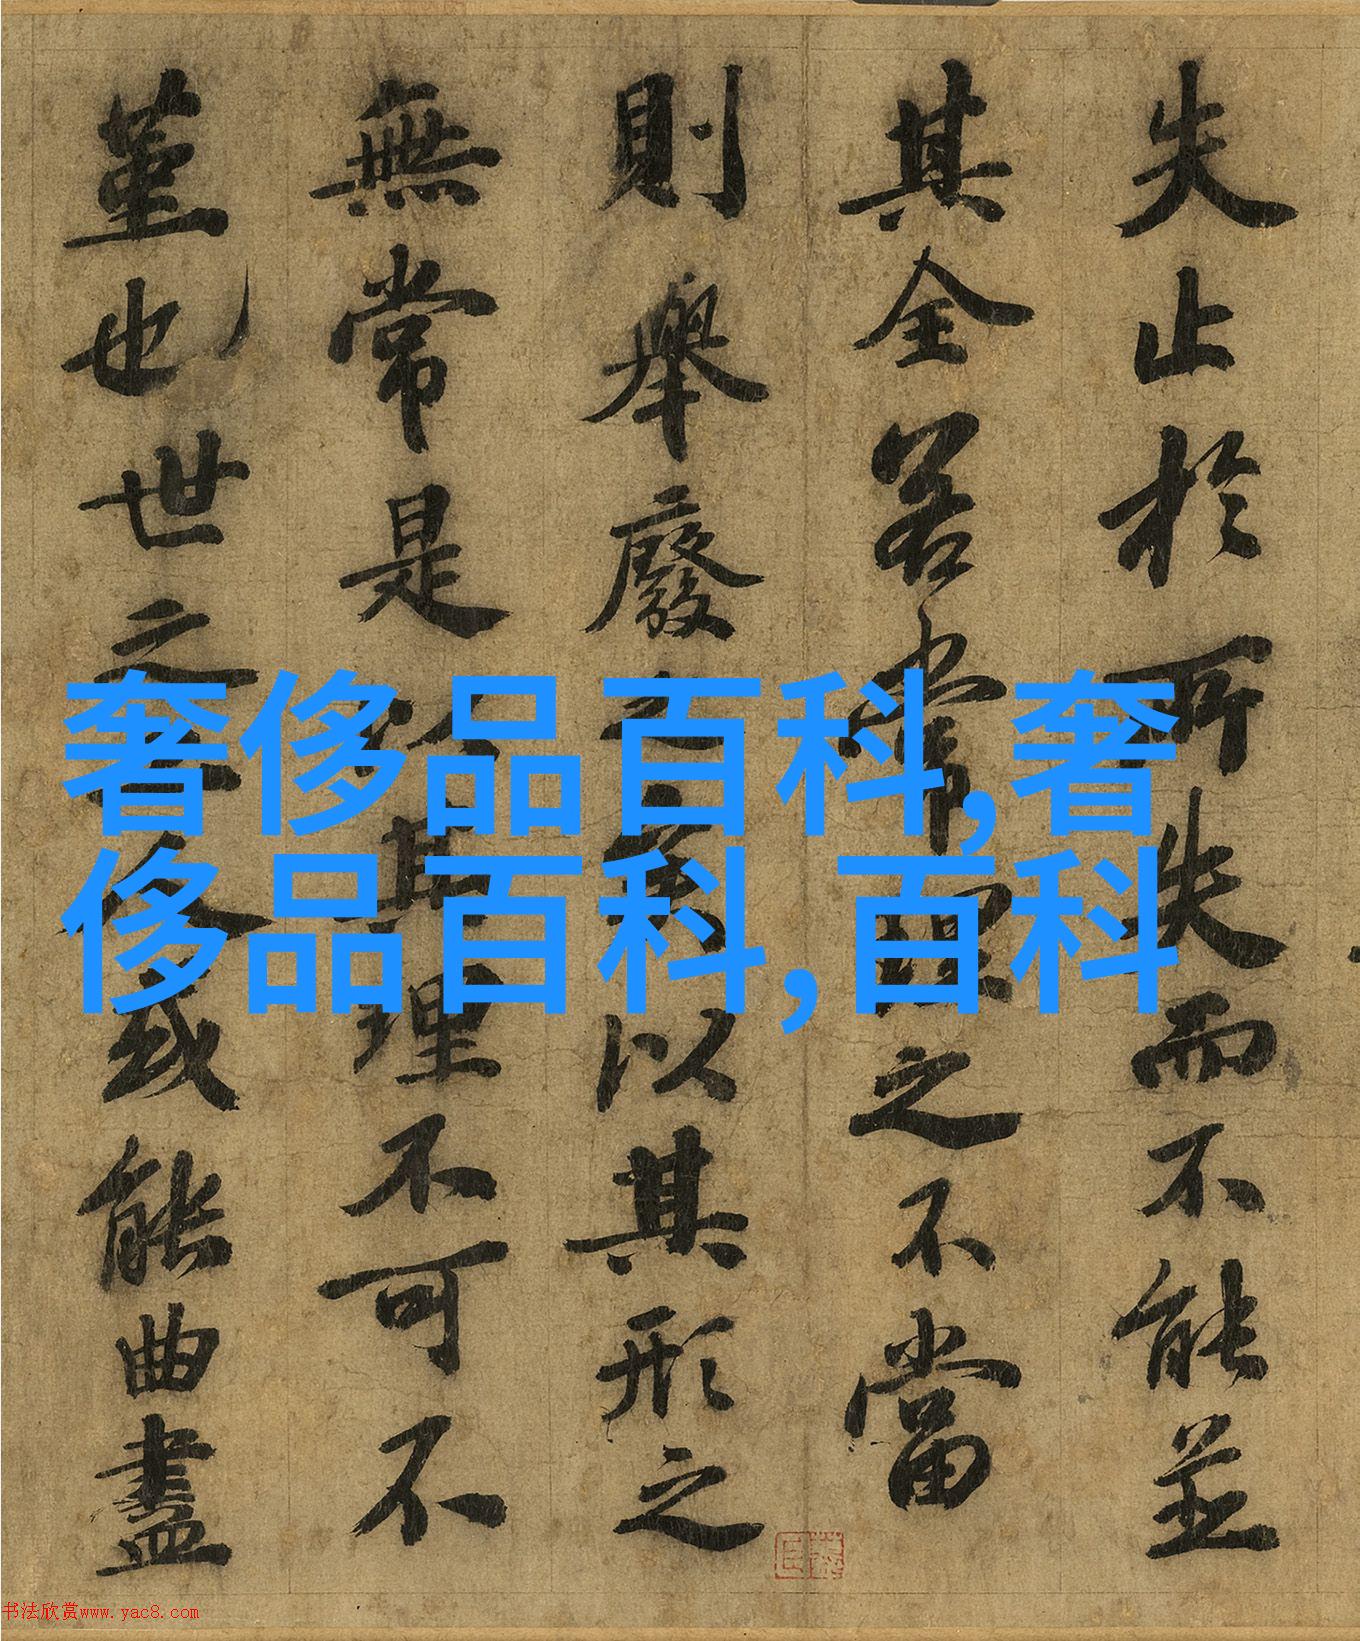 失止於所失而不能並
其全若常理之不當
則舉廢之矣以其形之
無常是以其理不可不
堇也世之工人或能曲盡
奢侈品百科,奢
侈品百科,百科
书法欣赏www.yac8.com